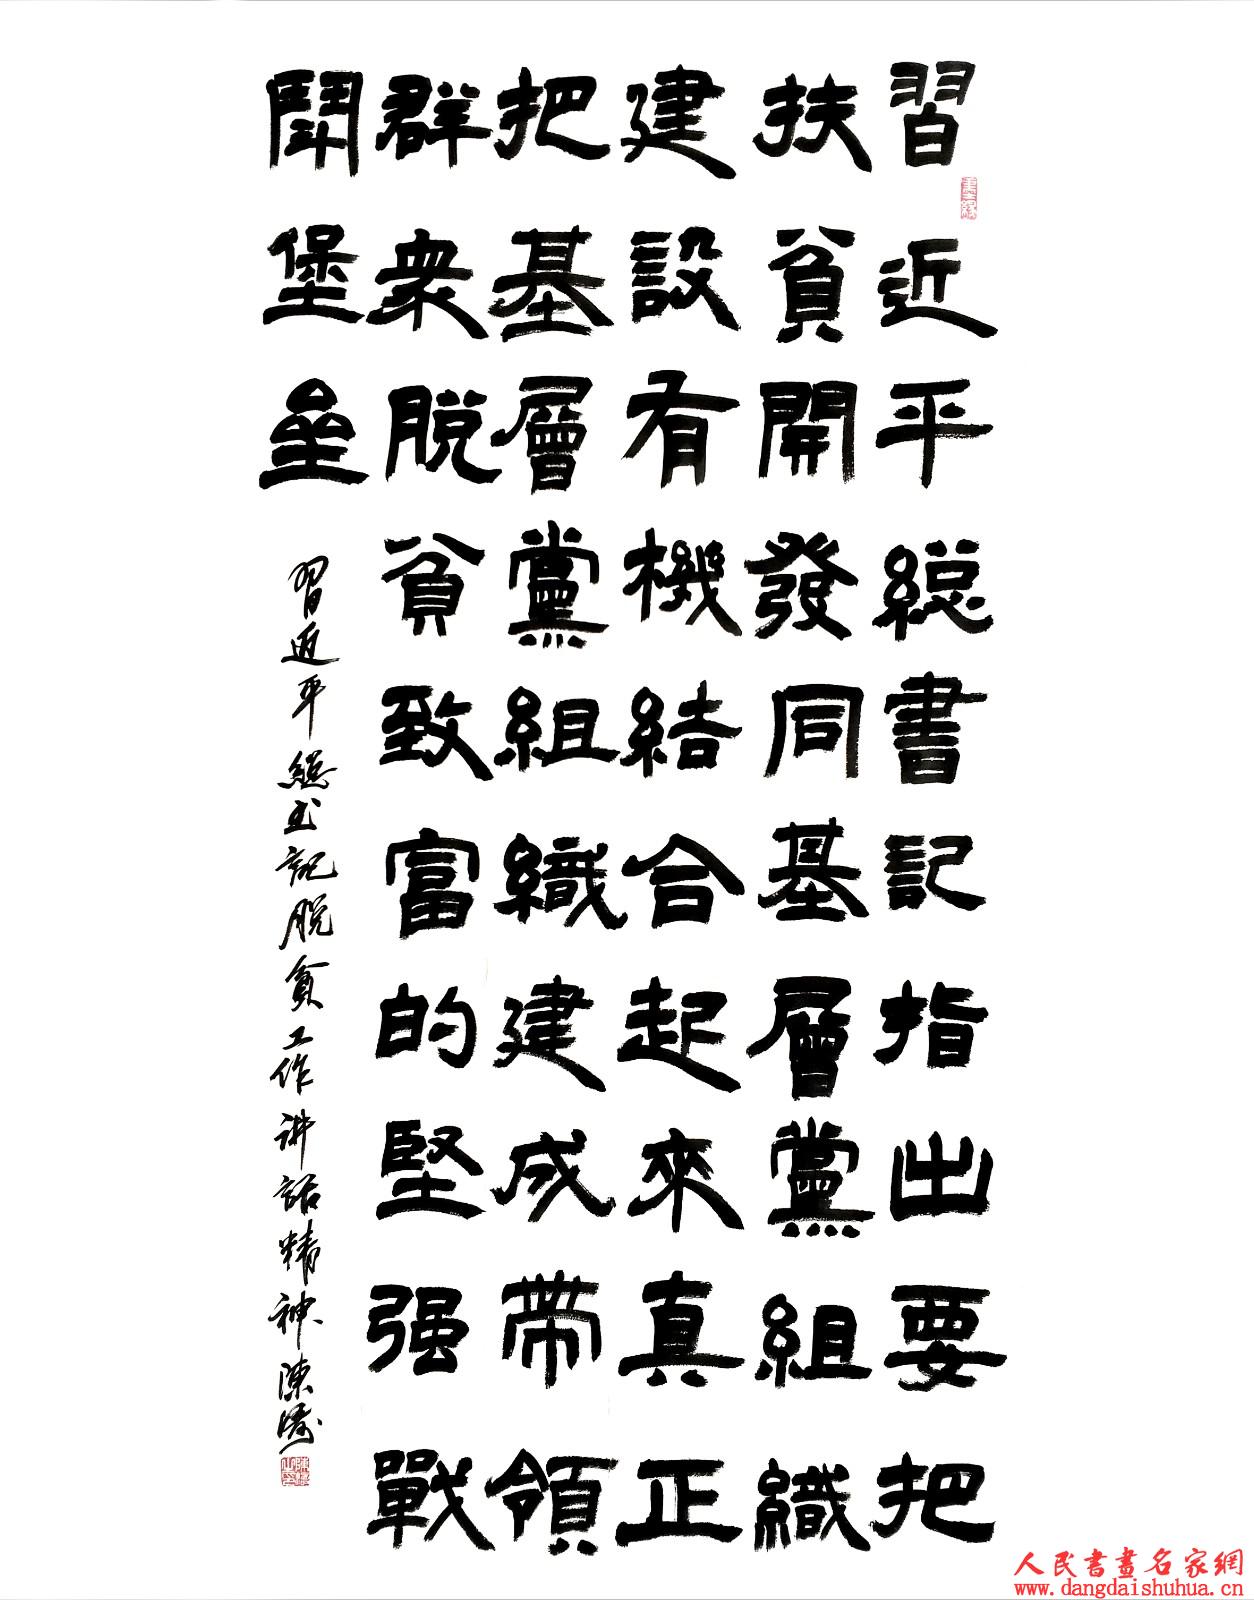 習近平總書記指出要把
扶貧開發同基層黨組織
建設有機結合起來真正
把基層黨組織建成帶領
群衆脱貧致富的堅强戰
鬥堡壘
習近平總书記脱貧工作讲話精神陳濤
人民書畫名家網
www.dangdaishuhua.cn